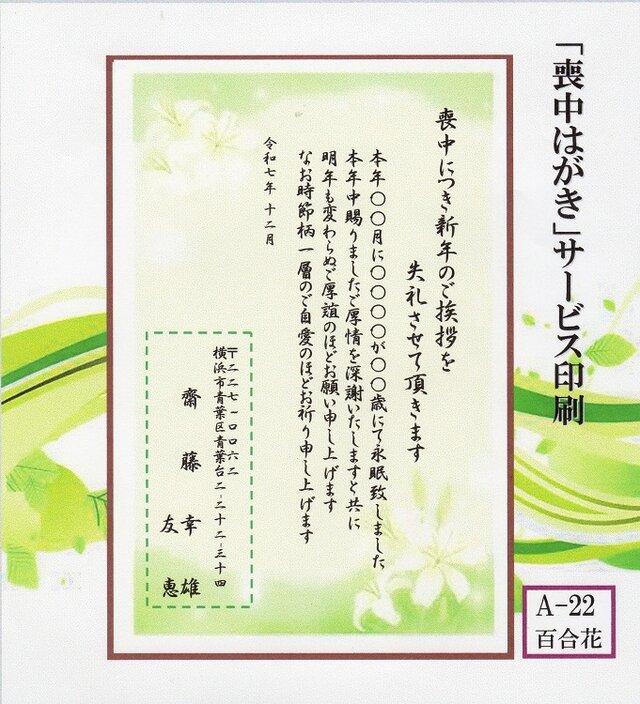 「喪中はがき」サービス印刷
喪中につき新年のご挨拶を
失礼させて頂きます
本年〇〇月に〇〇〇〇が〇〇歳にて永眠致しました
本年中賜りましたご厚情を深謝いたしますと共に
明年も変わらぬご厚誼のほどお願い申し上げます
なお時節柄一層のご自愛のほどお祈り申し上げます
令和七年 十二月
〒二二七-〇〇六二
横浜市青葉区青葉台二-二十二-三十四
齋藤幸雄
友恵
A-22
百合花